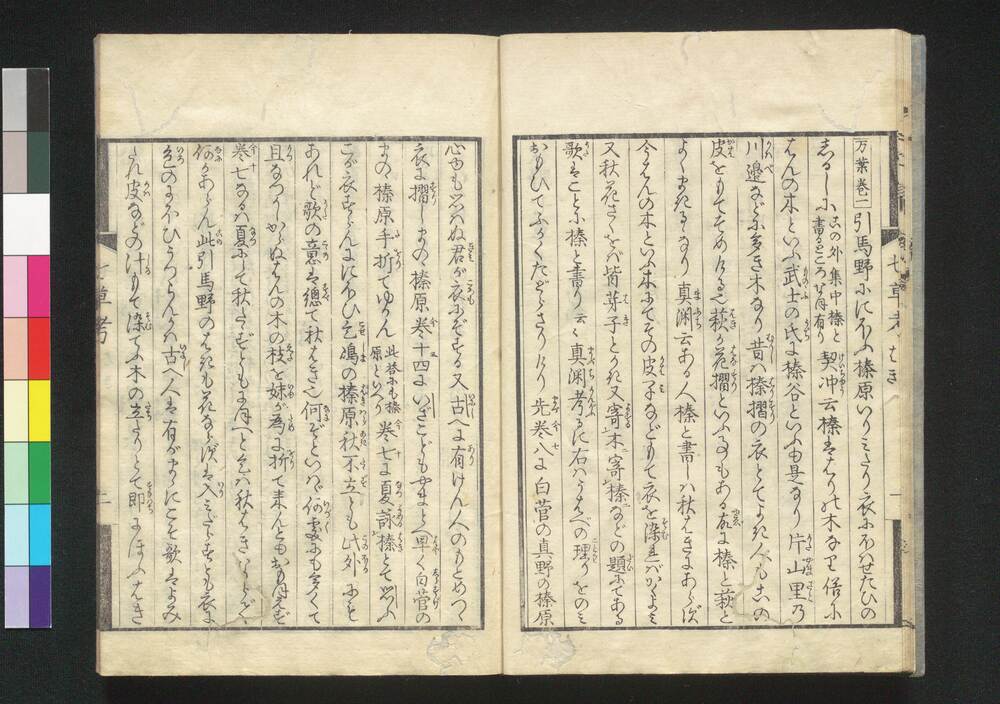 万葉巻一 引馬野ににほふ榛原いりみだり衣にほはせたひの
しるしに 此外集中榛と書るところ若有り 契沖云榛ははりの木なり俗に
はんの木といふ武士の氏に榛谷といふ由是なり片山里乃
川邊などに多き木なり昔は榛摺の衣とてよき人も此の
皮をもてそめけるを萩が花摺といふ事もある故に榛と萩と
よくまぎるゝなり真渕云ある人榛と書しは秋はぎにあらず
今はんの木といふ木にてその皮子などもて衣を染ればかくよみ
又秋花さくをば皆芽子とかき又寄木寄榛などの題にてある
歌はことに榛と書り云々真渕考るに右はうはべの理りをのみ
おもひてふかくたどらざりけり先巻八に白菅の真野の榛原
心ゆも思はぬ君が衣にぞする又古へに有けん人のもとめつゝ
衣に摺しまのゝ榛原巻十四にいざこどもやまとへ早く白菅の
まのゝ榛原手折てゆかん 此答にも榛原といへり 巻七に夏詠榛とて思ふ
こが衣すらんににほひこせ嶋の榛原秋不立とも此外にも
あれど歌の意は總て秋はぎ也何ぞといはゞ何處にも多くて
且なつかしからぬはんの木の枝を妹が為に折て来んともおもほえず
巻七なるは夏にして秋たゝずともにほへと乞は秋はぎいちじるく
何かあらん此引馬野のはぎも花ならずは入みだらすとも衣に
色のにほひうつらんかは古へ人は有がまゝにこそ歌はよみ
たれ皮などの汁もて染てふ木の立たりとて即にほふはぎ
七草考 はき
七草考